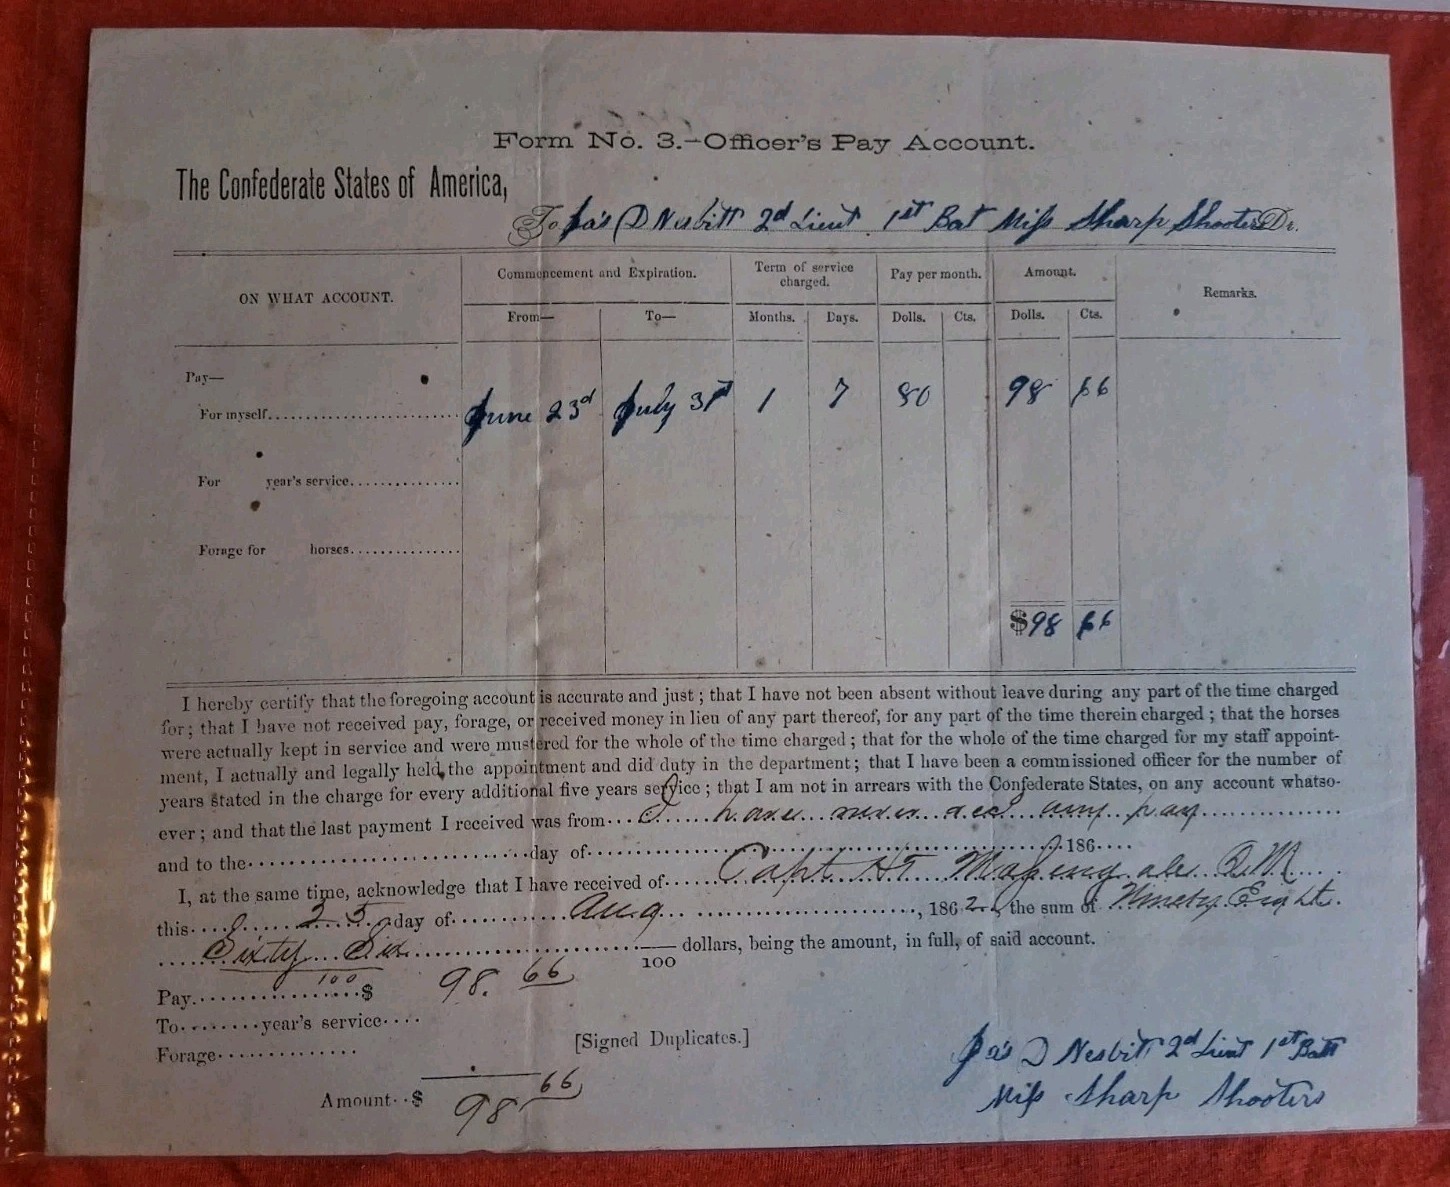 Form No. 3.—Officer's Pay Account.
The Confederate States of America,
To Jas D Nesbitt 2d Lieut 1st Bat Miss Sharp Shooters Dr.
ON WHAT ACCOUNT. Commencement and Expiration. Term of service charged. Pay per month. Amount. Remarks.
From— To— Months. Days. Dolls. Cts. Dolls. Cts.
Pay—
For myself.................... June 23d July 31st 1 7 80 98 66
For year's service...............
Forage for horses...............
$98 66
I hereby certify that the foregoing account is accurate and just; that I have not been absent without leave during any part of the time charged
for; that I have not received pay, forage, or received money in lieu of any part thereof, for any part of the time therein charged; that the horses
were actually kept in service and were mustered for the whole of the time charged; that for the whole of the time charged for my staff appoint-
ment, I actually and legally held the appointment and did duty in the department; that I have been a commissioned officer for the number of
years stated in the charge for every additional five years service; that I am not in arrears with the Confederate States, on any account whatso-
ever; and that the last payment I received was from... I have never recd any pay
and to the..............................day of..............................186....
I, at the same time, acknowledge that I have received of...... Capt. H T
this.... 25 day of........... Aug ................., 1862, the sum of Ninety Eight
Sixty Six ........................ dollars, being the amount, in full, of said account.
100
100
Pay..................$ 98. 66
To........year's service....
Forage..............
[Signed Duplicates.]
Amount..$ 98 66
Jas D Nesbitt 2d Lieut 1st Batt
Miss Sharp Shooters